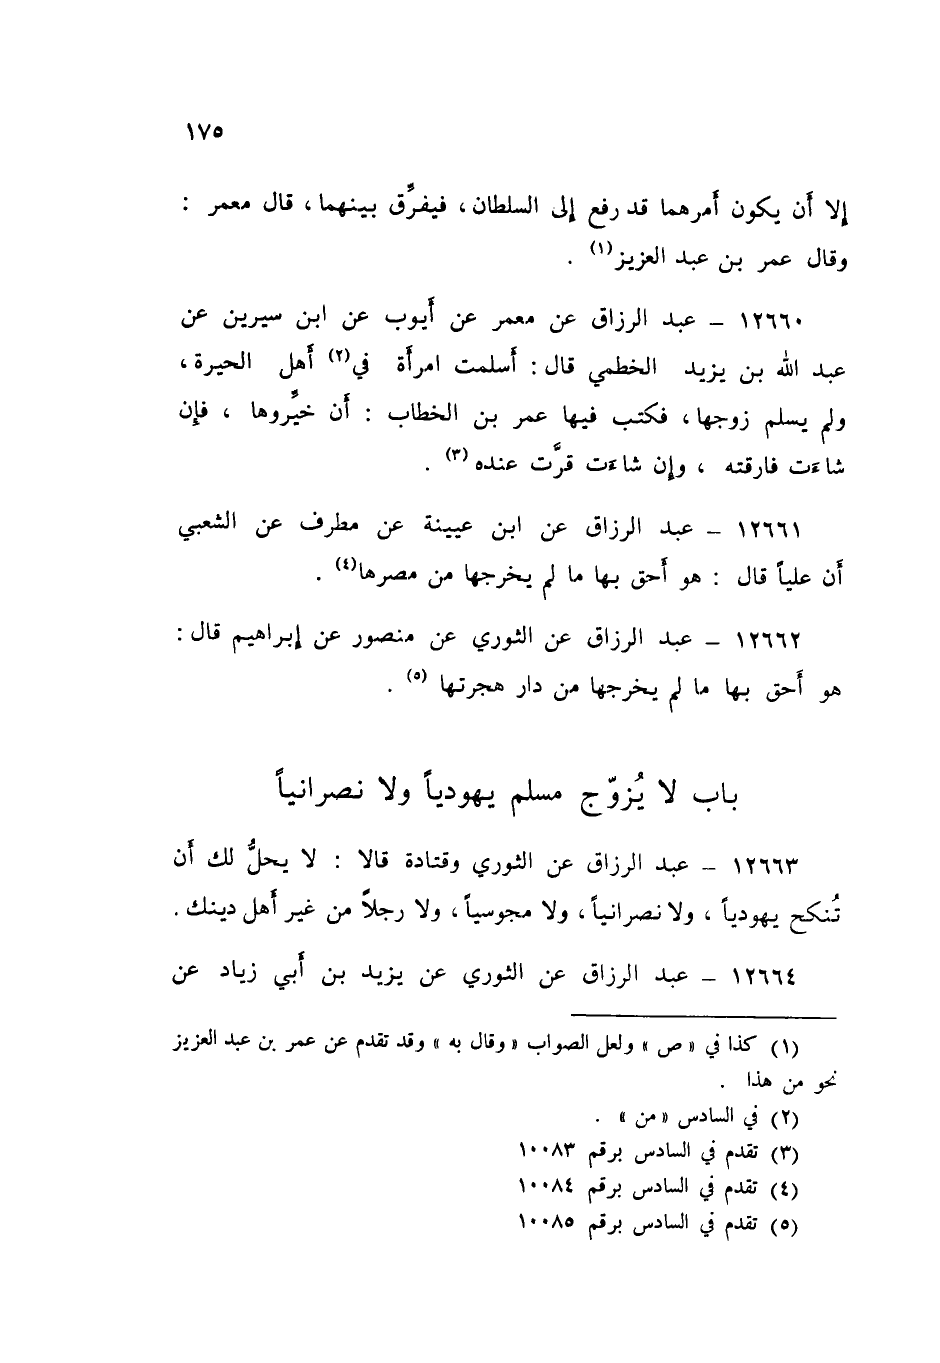 ١٧٥
إلا أن يكون أمرهما قد رفع إلى السلطان، فيفرَّق بينهما، قال معمر :
وقال عمر بن عبد العزيز(١) .
١٢٦٦٠ – عبد الرزاق عن معمر عن أيوب عن ابن سيرين عن
عبد الله بن يزيد الخطمي قال : أسلمت امرأة في(٢) أهل الحيرة ،
ولم يسلم زوجها، فكتب فيها عمر بن الخطاب : أن خيِّروها ، فإن
شاءت فارقته ، وإن شاءت قرَّت عنده(٣) .
١٢٦٦١ – عبد الرزاق عن ابن عيينة عن مطرف عن الشعبي
أن علياً قال : هو أحق بها ما لم يخرجها من مصرها(٤) .
١٢٦٦٢ – عبد الرزاق عن الثوري عن منصور عن إبراهيم قال :
هو أحق بها ما لم يخرجها من دار هجرتها (٥) .
باب لا يُزوّج مسلم يهودياً ولا نصرانياً
١٢٦٦٣ – عبد الرزاق عن الثوري وقتادة قالا : لا يحلُّ لك أن
تُنكح يهودياً ، ولا نصرانياً، ولا مجوسياً، ولا رجلاً من غير أهل دينك .
١٢٦٦٤ – عبد الرزاق عن الثوري عن يزيد بن أبي زياد عن
(١) كذا في « ص » ولعل الصواب « وقال به » وقد تقدم عن عمر بن عبد العزيز
نحو من هذا .
(٢) في السادس « من » .
(٣) تقدم في السادس برقم ١٠٠٨٣
(٤) تقدم في السادس برقم ١٠٠٨٤
(٥) تقدم في السادس برقم ١٠٠٨٥